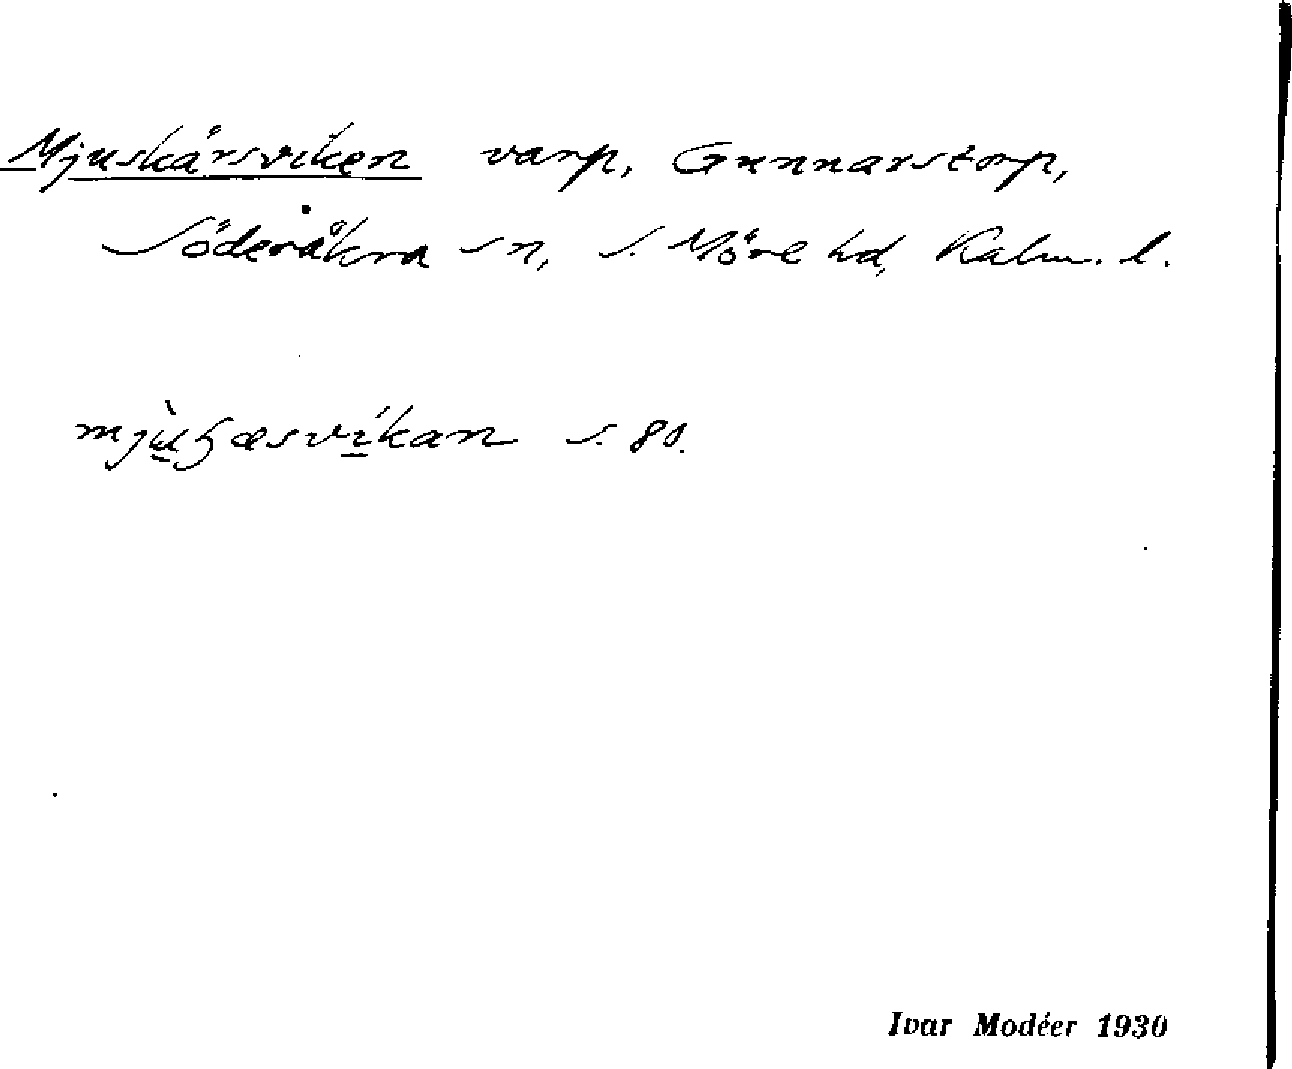 Mjuskärsviken varp, Gunnarstorp,
Söderåkra sn, S. Möre hd, Kalm. l.
s. 80.
Ivar Modéer 1930